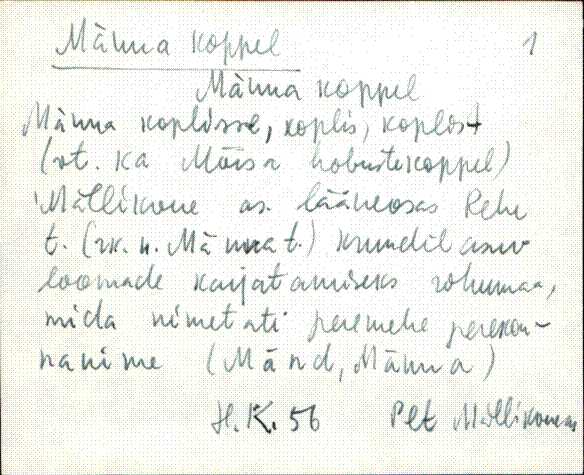 Männa koppel 1
Männa koppel
Männa koplisse, koplis, koplist
(vt. ka Mõisa hobustekoppel)
Mällikvere as. lääneosas Rehe
t. (rk. n. Männa t.) krundil asuv
loomade karjatamiseks rohumaa,
mida nimetati peremehe perekon-
nanime (Mänd, Männa)
H.K. 56 Plt Mällikvere as